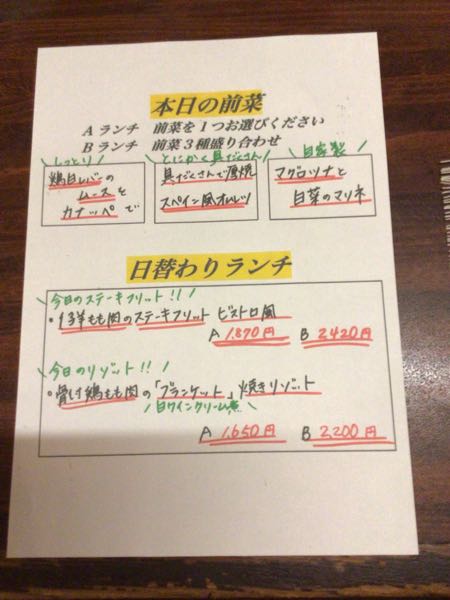 本日の前菜
Aランチ 前菜を1つお選びください
Bランチ 前菜3種盛り合わせ
しっとり
鶏白レバーの
ムースを
カナッペで
とにかく具だくさん
具だくさんで厚焼
スペイン風オムレツ
自家製
マグロツナと
白菜のマリネ
日替わりランチ
今日のステーキフリット!!
・仔羊もも肉のステーキフリット ビストロ風
A 1,870円 B 2,420円
今日のリゾット!!
・骨付鶏もも肉の「ブランケット」焼きリゾット
白ワインクリーム煮
A 1,650円 B 2,200円